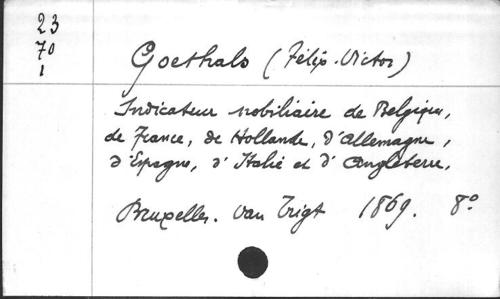 23
70
1
Goethals (Félix-Victor)
Indicateur nobiliaire de Belgique,
de France, de Hollande, d'Allemagne,
d'Espagne, d'Italie et d'Angleterre.
Bruxelles. Van Trigt 1869. 8°